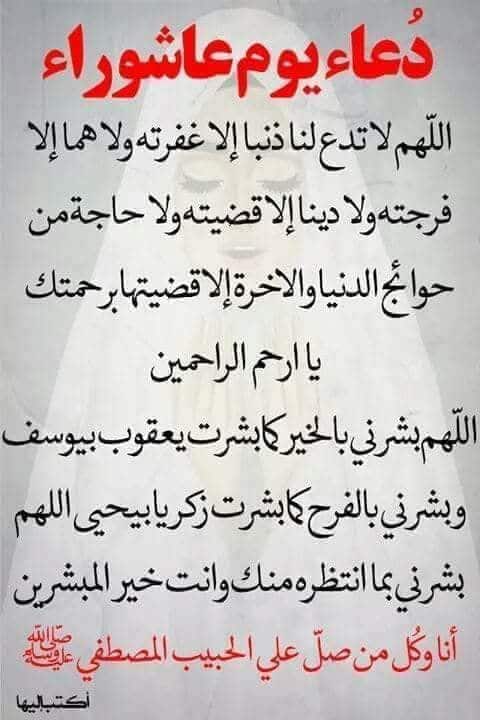 دُعاء يوم عاشوراء
اللّهم لا تدع لنا ذنبا إلا غفرته ولا هما إلا
فرجته ولا دينا إلا قضيته ولا حاجة من
حوائج الدنيا والاخرة إلا قضيتها برحمتك
يا ارحم الراحمين
اللّهم بشرني بالخير كما بشرت يعقوب بيوسف
وبشرني بالفرح كما بشرت زكريا بيحيى اللهم
بشرني بما انتظره منك وانت خير المبشرين
أنا وكُل من صلّ علي الحبيب المصطفي ﷺ
أكتب إليها